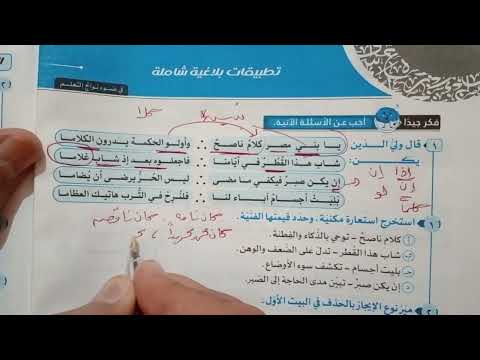 تطبيقات بلاغية شاملة
في ضوء نواتج التعلم
فكر جيدًا أجب عن الأسئلة الآتية.
١ قال ولي الدين يكن:
يا بني مصر كلامُ ناصحٍ ∴ وأولو الحكمة يدرون الكلاما
شاب هذا القُطرُ في أيامنا ∴ فاجعلوه بعد إذ شاب غلاما
إن يكن صبرٌ فيكفي ما مضى ∴ ليس الحر يرضى أن يضاما
بَليَتْ أجسامُ أبناءٍ لنا ∴ فلنُرِحْ في التُّرب هاتيك العظاما
إذا إن
أن لو
كلما
١ استخرج استعارة مكنية، وحدد قيمتها الفنية.
كان تامة، كان ناقصة
أ كلام ناصح - توحي بالذكاء والفطنة.
ب شاب هذا القطر - تدل على الضعف والوهن.
ج بليت أجسام - تكشف سوء الأوضاع.
د إن يكن صبر - تبين مدى الحاجة إلى الصبر.
٢ ميز نوع الإيجاز بالحذف في البيت الأول.